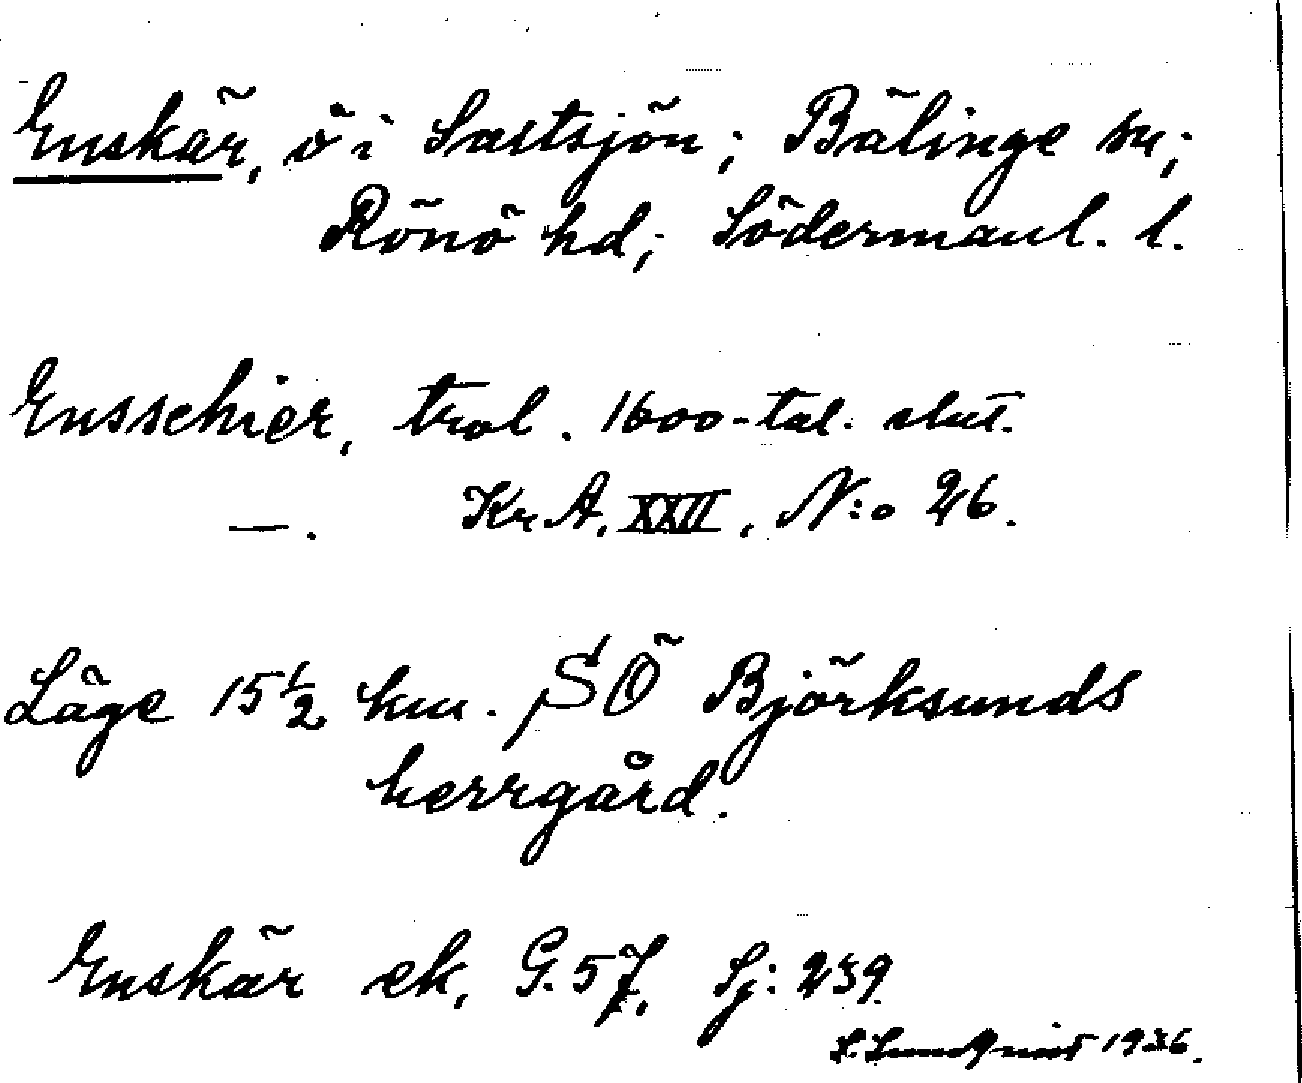 Enskär, ö i Saltsjön; Bälinge sn;
Rönö hd; Södermanl. l.
Ensschier, trol. 1600-tal. slut.
—. KrA. XXII, N:o 26.
Läge 15½ km. SÖ Björksunds
herrgård.
Enskär ek, G. 57, Sj: 239
S. Lundqvist 1936.